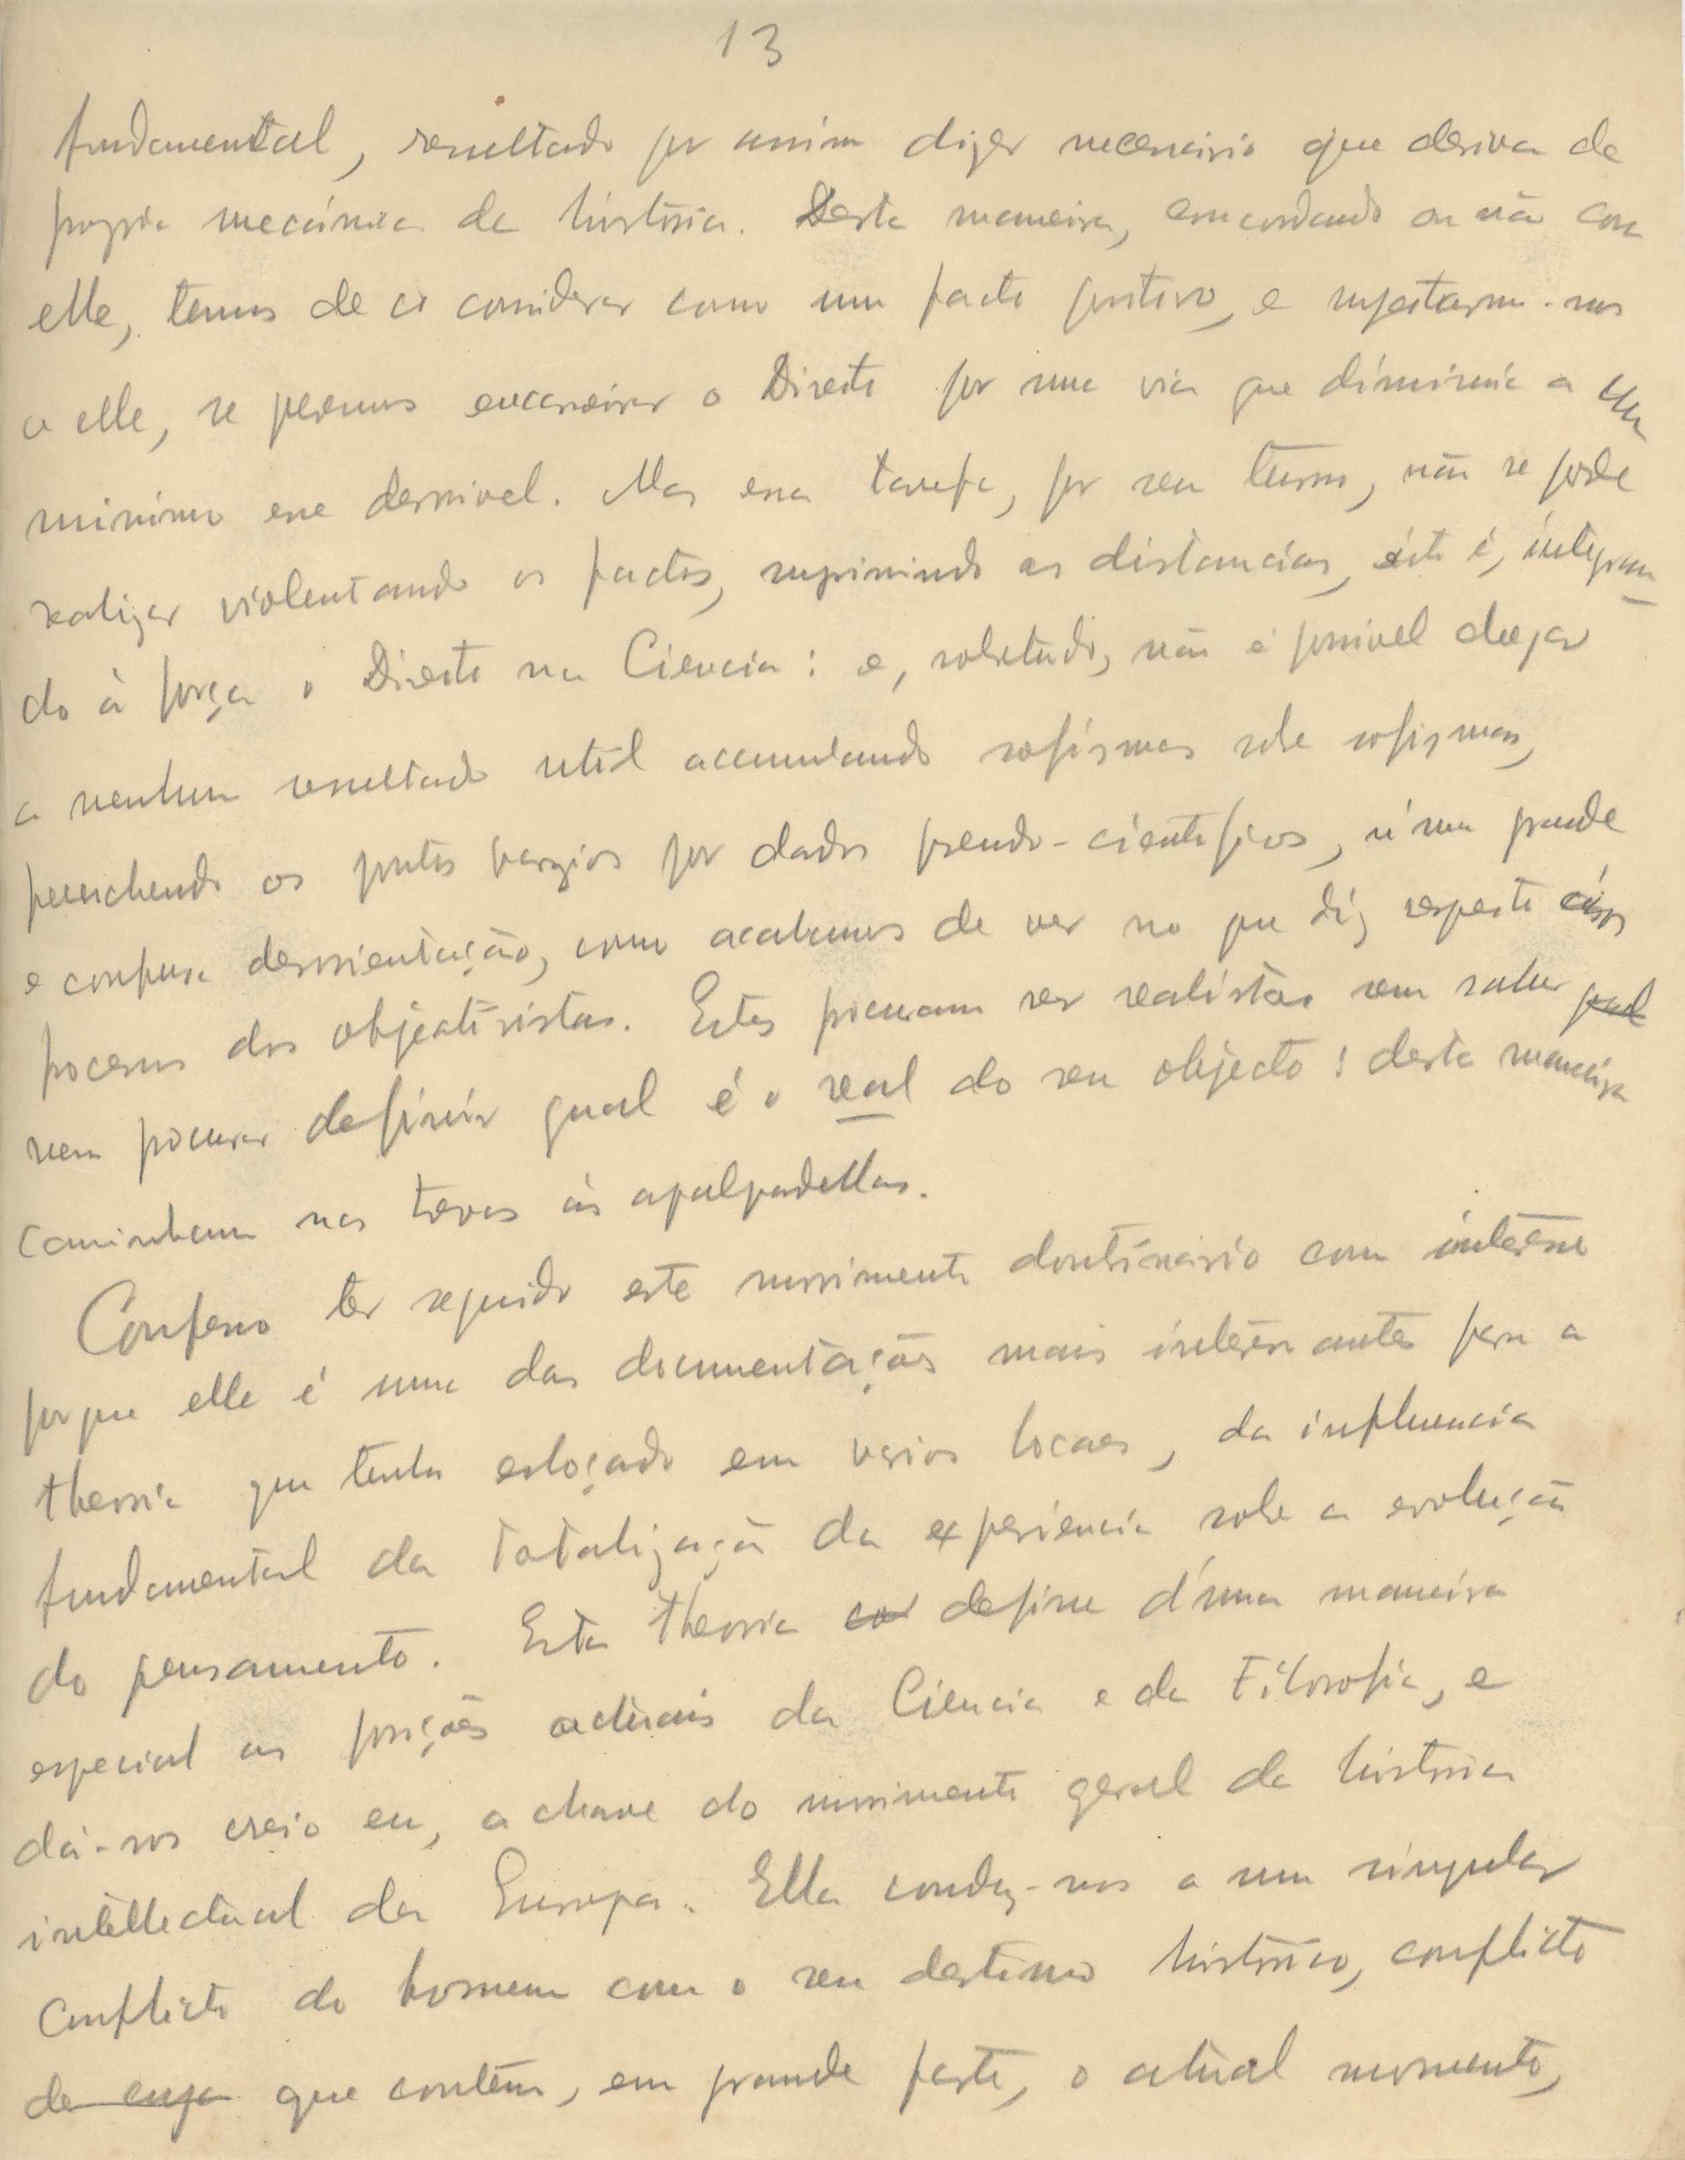 13
fundamental, resultado por assim dizer necessario que deriva da
propria mecánica da história. Desta maneira, concordando ou não com
elle, temos de o considerar como um facto positivo, e sujeitarmo-nos
a elle, se queremos encaminhar o Direito por uma via que diminuia a um
minimo esse desnivel. Mas essa tarefa, por seu turno, não se pode
realizar violentando os factos, suprimindo as distancias, isto é, integran-
do à força o Direito na Ciencia: e, sobretudo, não é possivel chegar
a nenhum resultado util accumulando sofismas sobre sofismas,
preenchendo os pontos vazios por dados pseudo-cientificos, n'uma grande
e confusa desorientação, como acabamos de ver no que diz respeito aos
processos dos objectivistas. Estes procuram ser realistas sem saber
nem procurar definir qual é o real do seu objecto: desta maneira
caminham nas trevas ás apalpadellas.
Confesso ter seguido este movimento doutrinário com interesse
porque elle é uma das documentações mais interessantes para a
theoria que tenho esboçado em varios locaes, da influencia
fundamental da totalização da experiencia sobre a evolução
do pensamento. Esta theoria define d'uma maneira
especial as posições actuais da Ciencia e da Filosofia, e
dá-nos creio eu, a chave do movimento geral da história
intellectual da Europa. Ella conduz-nos a um singular
conflicto do homem com o seu destino histórico, conflicto
de cuja que contém, em grande parte, o actual momento,